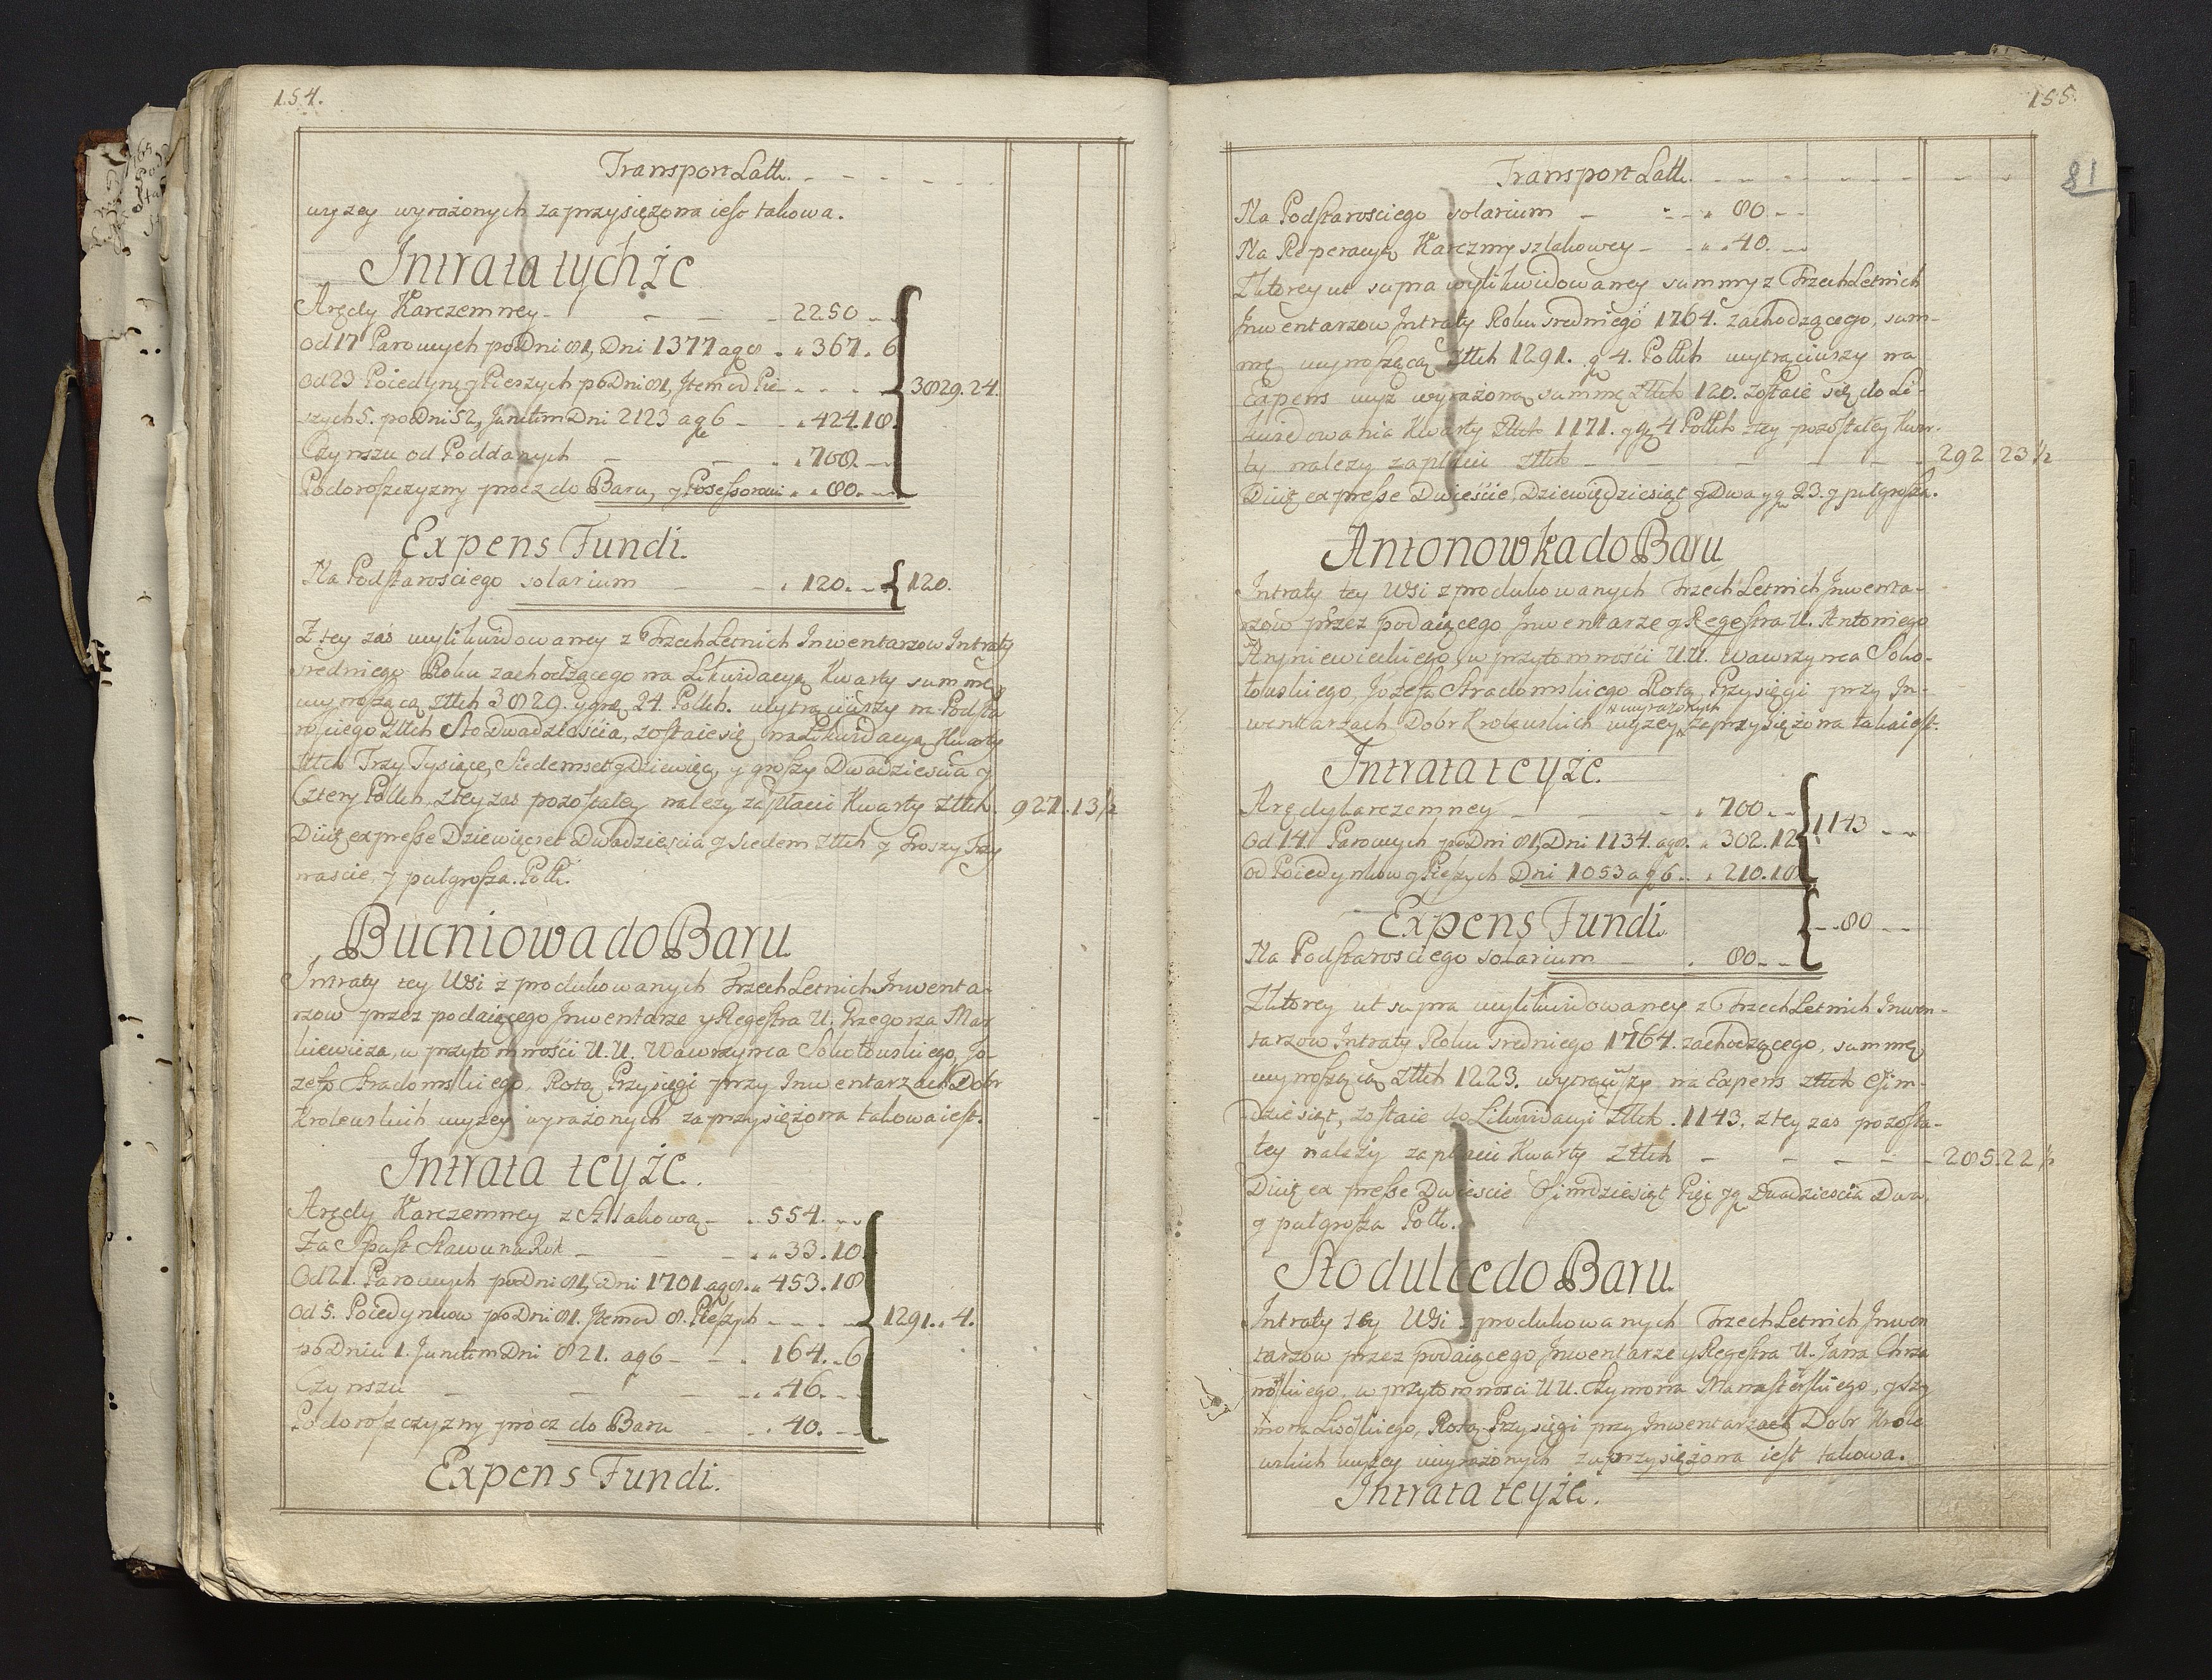 154.
Transport Latt. - - - - -
wyzey wyrażonych zaprzysięzona iest takowa.
Intrata tychże
Arędy Karczemney - - - - 2250 - -
Od 17 Parowych po Dni 81, Dni 1377 a g 8 . „ 367 . 6
Od 23 Poiedyn: y Pieszych po Dni 81, Item od Pie - - - -
szych 5. po Dni 52, Junctim Dni 2123 a gr 6 - - „ 424. 18.
3829. 24.
Czynszu od Poddanych - - - „ 708. - -
Podoroszczyzny procz do Baru, y Posessorowi „ „ 80. - -
Expens Fundi.
Na Podstarosciego solarium - - „ 120. - -
120.
Z tey zaś wylikwidowaney z Trzech Letnich Inwentarzow Intraty
sredniego Roku zachodzącego na Likwidacyą Kwarty summę
wynoszącą Złłch 3829. y grę 24. Pollch. wytrąciwszy na Podsta
rosciego Złłch Sto Dwadzieścia, zostaie się na Likwidacyą Kwarty
Złłch Trzy Tysiące, Siedemset y dziewięc, y groszy Dwadziescia y
Cztery Pollch, z tey zas pozostałey nalezy zapłacic Kwarty Złłch. 927. 13 ½
Diiż expresse Dziewięcset Dwadziescia y Siedem Złłch y Groszy Trzy
nascie, y pułgrosza. Poll.
Bucniowa do Baru
Intraty tey Wsi z produkowanych Trzech Letnich Inwenta-
rzow przez podaiącego Inwentarze y Regestra U. Grzegorza Mar
kiewicza, w przytomności U. U. Wawrzynca Sokołowskiego, Jo-
zefa Stradomskiego, Rotą Przysięgi przy Inwentarzach Dobr
Krolewskich wyzey wyrażonych zaprzysiężona takowa iest.
Intrata teyże.
Arędy Karczemney z Szlakową - „ 554. - -
Za Spust Stawu na Rok - - - „ „ 33. 10
Od 21. Parowych po Dni 81, Dni 1701. a g 8. „ 453. 18
Od 5. Poiedynkow po Dni 81. Item od 8. Pieszych - - - -
1291. „ 4.
po Dniu 1. Junctim Dni 821. a g 6 - - „ 164. „ 6
Czynszu - - - - „ „ 46. - -
Podoroszczyzny procz do Baru - - „ „ 40. - -
Expens Fundi.
155.
81
Transport Latt. - - - - - - -
Na Podstarosciego solarium - „ - „ 80. - -
Na Reperacyą Karczmy szlakowey - - „ „ 40. - -
Z ktorey ut supra wylikwidowaney summy z Trzech Letnich
Inwentarzow Intraty Roku sredniego 1764. zachodzącego, sum-
mę wynoszącą Złłch 1291. g 4. Pollch wytrąciwszy na
Expens wyż wyrażoną summę Złłch 120. zostaie się do Li-
kwidowania Kwarty Złłch 1171. y g 4 Pollch z tey pozostałey Kwar-
ty nalezy zapłacic Złłch - - - - - - 292 23 ½
Diiż expresse Dwieście, Dziewięćdziesiąt y Dwa y gr 23. y pułgrosza.
Antonowka do Baru
Intraty tey Wsi z produkowanych Trzech Letnich Inwenta-
rzow przez podaiącego Inwentarze y Regestra U. Antoniego
w przytomności U. U. Wawrzynca Soko-
łowskiego, Jozefa Stradomskiego Rotą Przysięgi przy In-
wyrażonych
wentarzach Dobr Krolewskich wyzey zaprzysiężona taka iest.
Intrata teyże.
Arędy karczemney - - - „ 700. - -
Od 14. Parowych po Dni 81, Dni 1134. a g 8. „ 302. 12
1143 - -
Od Poiedynkow y Pieszych Dni 1053 a g 6. „ 210. 18
Expens Fundi.
- - 80 - -
Na Podstarosciego solarium - - „ 80 - -
Z ktorey ut supra wylikwidowaney z Trzech Letnich Inwen-
tarzow Intraty Roku sredniego 1764. zachodzącego, summę
wynoszącą Złłch 1223. wytrąciwszy na Expens Złłch Osim-
dziesiąt, zostaie do Likwidacyi Złłch. 1143. z tey zas pozosta-
łey należy zapłacic Kwarty Złłch - - - - - 285. 22 ½
Diiż expresse Dwiescie Osimdziesiąt Pięć y gr Dwadziescia Dwa,
y pułgrosza Poll.
Stodulce do Baru
Intraty tey Wsi z produkowanych Trzech Letnich Inwen
tarzow przez podaiącego Inwentarze y Regestra U. Jana Chrza
nowskiego, w przytomnosci U U. Szymona Manasterskiego, y Szy
mona Lisowskiego, Rotą Przysięgi przy Inwentarzach Dobr Krole
wskich wyzey wyrażonych zaprzysiężona iest takowa.
Intrata teyże.